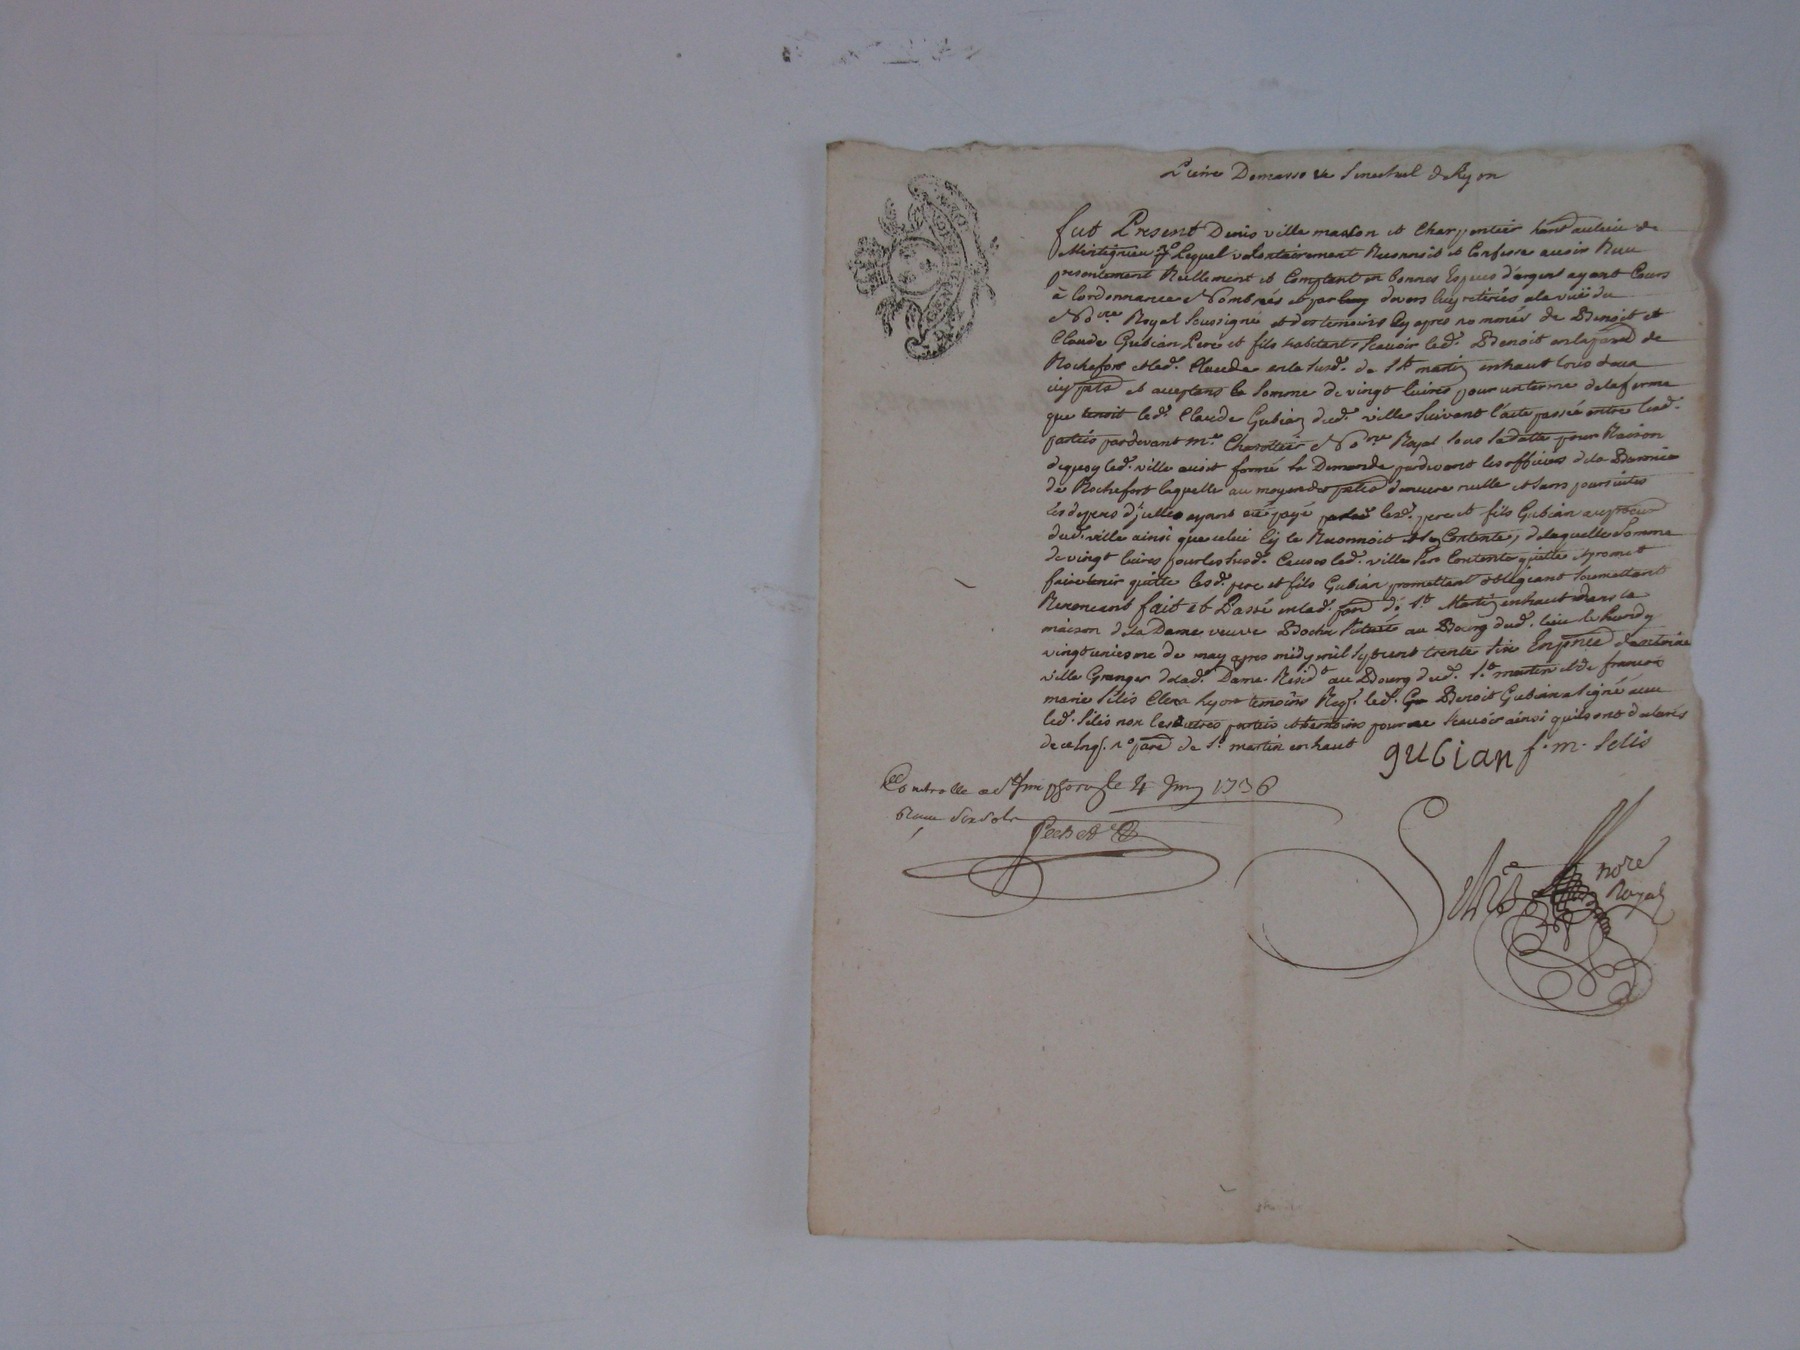 Pierre Demasso ve Senechal de Lyon
fut Present Denis ville masson et Charpentier hand au lieu de
Montagnieu lequel volontairement Reconnoit et Confesse avoir Reçu
presentement Reellement et Comptant en bonnes Especes d'argent ayant Cours
à Lordonnance Nombrés et par luy devers luy retirés a la vuë du
No.re Royal Soussigné et des temoins Cy apres nommés de Benoit et
Claude Gubian Pere et fils habitants Scavoir led. Benoit en la parr. de
Rochefort et led. Claude en la susd. de St martin en haut tous deux
icy pnts et aceptans la Somme de vingt livres pour un terme de la ferme
que tenoit led. Claude Gubian dud. ville Suivant l'acte passée entre lesd.
parties pardevant me. No.re Royal Sous Sa datte pour Raison
dequoy led. ville avoit formé sa Demande pardevant les officiers de la Baronnie
de Rochefort laquelle au moyen des demeure nulle et sans poursuites
les depens d'jcelle ayant été payé par lesd. pere et fils Gubian au procur
dud. ville ainsi que celui Cy le Reconnoit et s'en Contente, de laquelle Somme
de vingt livres pour les susd. Causes led. ville Sen Contente quitte et promet
faire tenir quitte lesd. pere et fils Gubian promettant obligeant Soumettant
Renonceant fait et Passé en lad. parr. de St. Martin en haut dans la
maison de la Dame veuve au Bourg dud. lieu le lundy
vingt uniesme de may apres midy mil sept cent trente Six En pnce d'antoine
ville Granger de lad. Dame Resid.t au Bourg dud. St. martin et de francois
marie Silis Clerc Lyon temoins Req. led. Benoit Gubian a Signé avec
led. Silis non les autres parties et temoins pour ne Scavoir ainsi qu'ils ont declarés
de ce Enq. parr. de St. martin en haut
gubian f. m. Selis
Controlle a St Simphorien le 4 Juin 1736
Reçu Six Sols
nore
Royal